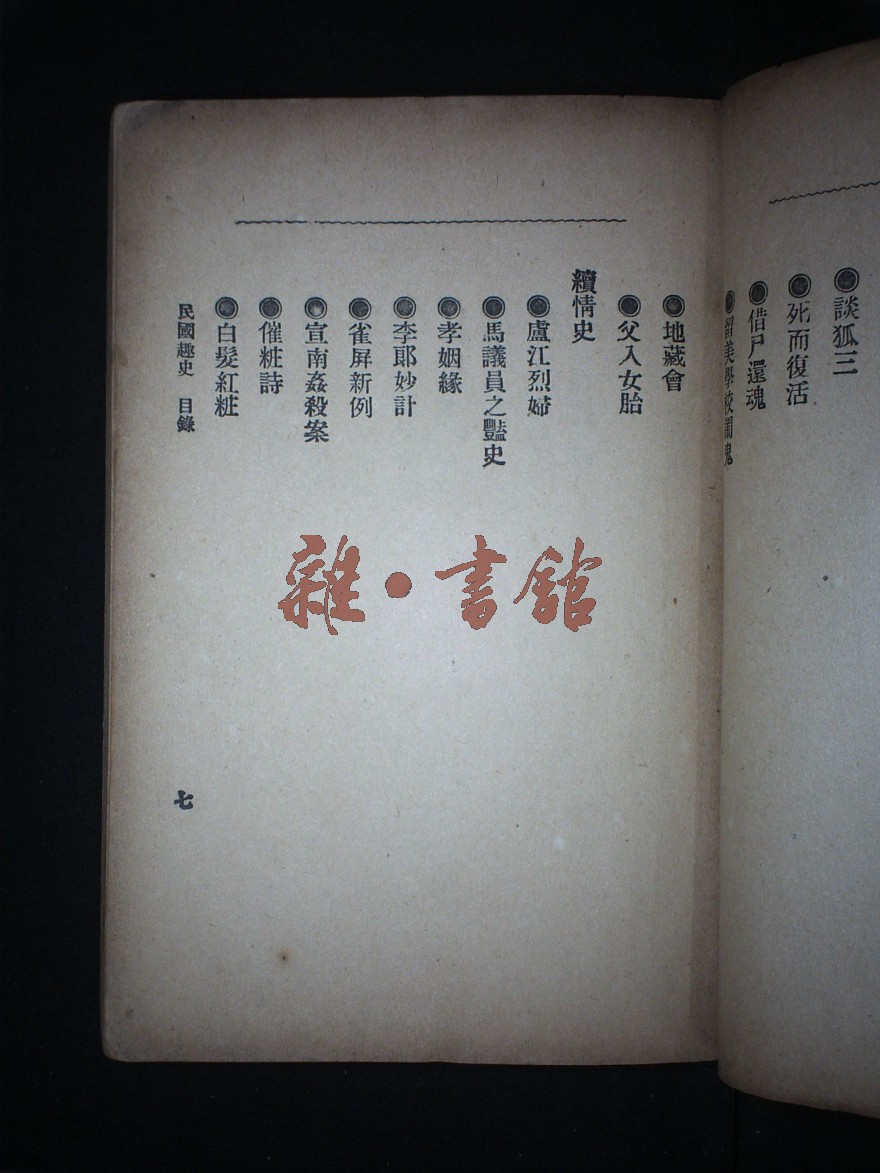 ◉談狐三
◉死而復活
◉借尸還魂
◉留美學校鬧鬼
◉地藏會
◉父入女胎
續情史
◉盧江烈婦
◉馬議員之豔史
◉孝姻緣
◉李郎妙計
◉雀屏新例
◉宣南姦殺案
◉催粧詩
◉白髮紅粧
民國趣史 目錄
七
雜•書館